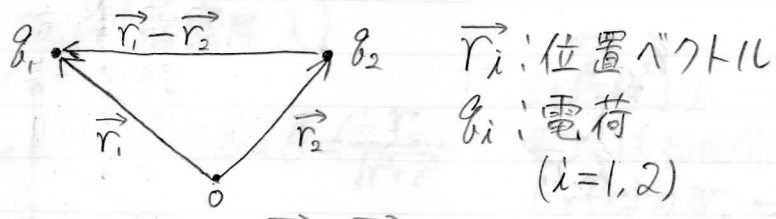 q₁ r₁⃗−r₂⃗ q₂
r₁⃗ r₂⃗
0
rᵢ⃗ : 位置ベクトル
qᵢ : 電荷
(i=1,2)